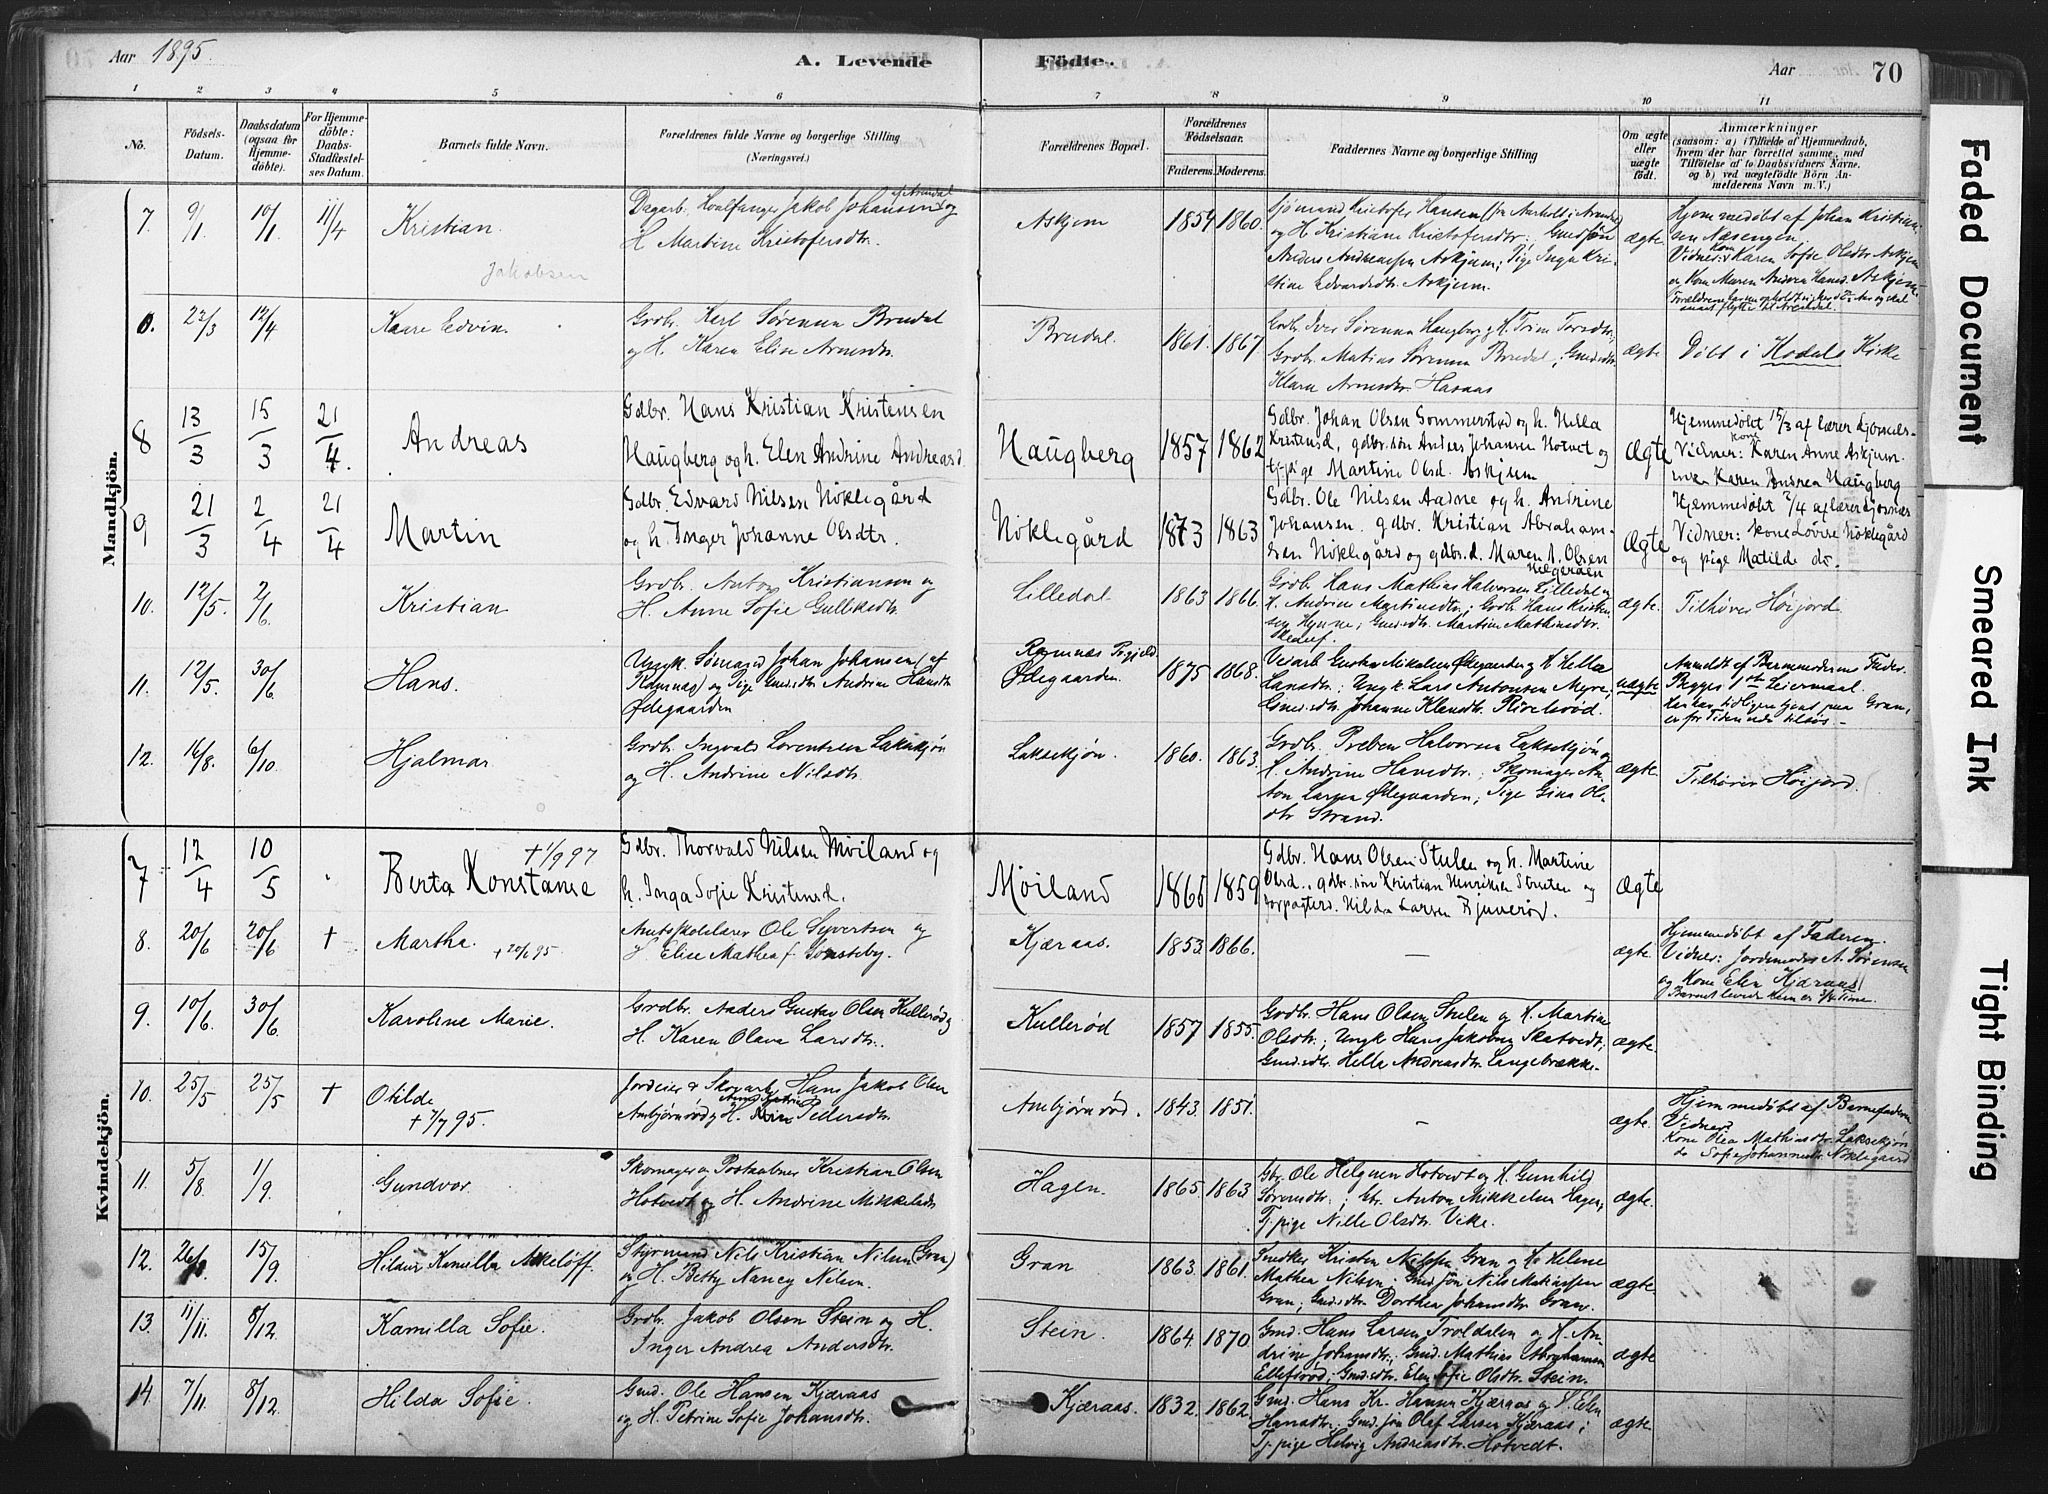 Aar 1895.
A. Levende
Fødte.
Aar
70
1
2
3
4
5
6
7
8
9
10
11
No.
Fødsels-
Datum.
Daabsdatum
(ogsaa for
Hjemme-
døbte).
For Hjemme-
døbte:
Daabs-
Stadfæstel-
ses Datum.
Barnets fulde Navn.
Forældrenes fulde Navne og borgerlige Stilling
(Næringsvei.)
Forældrenes Bopæl.
Forældrenes
Fødselsaar.
Faderens.
Moderens.
Faddernes Navne og borgerlige Stilling
Om ægte
eller
uægte
født.
Anmærkninger
(saasom: a) i Tilfælde af Hjemmedaab,
hvem der har forrettet samme, med
Tilføielse af to Daabsvidners Navne.
og b) ved uægtefødte Børn An-
melderens Navn m. V.)
Mandkjøn.
7. 9/1 10/1 11/4
Kristian.
Jakobsen
Dagarb. Hvalfanger Jakob Johansen af Arendal og
H. Martine Kristofersdtr.
Askjem
1854 1860.
Sjømand Kristofer Hansen (fra Aarholt i Arendal)
og H. Kristiane Kristofersdtr; Gmdsøn
Anders Andreassen Askjem; Pige Inga Kri-
stine Edvardsdtr Askjem.
ægte
Hjemmedøbt af Johan Kristian-
sen Næsengen.
Vidner: Kone Karen Sofie Olsdtr Askjem
og Kone Maren Andrea Hansd. Askjem.
23/3 12/4
Kaare Edvin.
Grdbr. Karl Sørensen Brudal
og H. Karen Elise Arnesdtr.
Brudal.
1861. 1867
Grdbr. Iver Sørensen Haugberg og H. Trine Torsdtr.
Grdbr. Matias Sørensen Brudal; Gmdsdtr.
Klara Arnesdtr. Hasaas
ægte
Døbt i Kodals Kirke
8 13/3 15/3 21/4.
Andreas
Gdbr. Hans Kristian Kristensen
Haugberg og h. Elen Andrine Andreasd.
Haugberg
1857 1862
Gdbr. Johan Olsen Gommerstad og h. Hella
Kristensd, gdbr.søn Anders Johansen Hotvet og
tj.pige Martine Olsd. Askjem
Ægte
Hjemmedøbt 15/3 af lærer Ljosnæs-
Vidner: kone Karen Anne Askjem
Karen Andrea Haugberg
9 21/3 2/4 21/4
Martin
Gdbr. Edvard Nilsen Nøklegård
og h. Inger Johanne Olsdtr.
Nøklegård
1873 1863
Gdbr. Ole Nilsen Aadne og h. Andrine
Johansen. gdbr. Kristian Abraham-
sen Nøklegård og gdbr.d. Maren A. Olsen
Helgeråen
Ægte
Hjemmedøbt 2/4 af lærer Ljosnæs
Vidner: kone Lovise Nøklegård
og pige Matilde do.
10. 12/5. 2/6
Kristian
Grdbr. Anton Kristiansen og
H. Anne Sofie Gulliksdtr.
Lilledal
1863 1866.
Grdbr. Hans Mathias Halvorsen Lilledal og
H. Andrine Martinsdtr.; Grdbr. Hans Kristen-
sen Hynne; Gmd.dtr. Martine Mathiasdtr.
ægte.
Tilhører Høijord.
11. 12/5. 30/6
Hans.
Ungk. Sømand Johan Johansen (af
Ramnæs) og Pige Gmdsdtr Andrine Hansdtr
Ødegaarden
Ramnæs Prgjeld.
Ødegaarden.
1875 1868.
Veiarb. Gustav Nikolai Ødegaarden og H. Hella
Larsdtr; Ungk. Lars Antonsen Myre,
Gmdsdtr. Johanne Klausdtr. Rivelsrød.
uægte
Anmeldt af Barnemoderens Fader.
Begges 1ste Leiermaal.
12. 16/8. 6/10.
Hjalmar
Grdbr. Ingvald Lorentsen Laksekjøn
og H. Andrine Nilsdtr.
Laksekjøn.
1860. 1863.
Grdbr. Preben Halvorsen Laksekjøn og
H. Andrine Hansdtr.; Skomager An-
ton Larsen Ødegaarden; Pige Gina Ols-
dtr Strand.
ægte.
Tilhører Høijord.
Kvindekjön.
7 12/4 10/5
Berta Konstanse
+ 1/9 97
Gdbr. Thorvald Nilsen Møiland og
h. Inga Sofie Kristensd.
Møiland
1865 1859
Gdbr. Hans Olsen Stulen og h. Martine
Olsd., gdbr.søn Kristian Henriksen Strueten og
forpagterd. Hilda Larsen Bjuerød.
Ægte
8. 20/6 20/6 +
Martha.
+ 20/6 95.
Amtsskolelærer Ole Syvertsen og
H. Elise Mathea f. Sønsteby.
Kjæraas.
1853. 1866.
—
ægte.
Hjemmedøbt af Faderen.
Vidner: Jordemoder A. Sørensen
og Kone Elen Kjæraas.
9. 10/6. 30/6
Karoline Marie.
Grdbr. Anders Gustav Olsen Kullerød og
H. Karen Olava Larsdtr.
Kullerød
1857 1855.
Grdbr. Hans Olsen Stulen og H. Martine
Olsdtr.; Ungk. Hans Jakobsen Skatvedt;
Gmdsdtr. Hella Andreasdtr. Langebrække.
ægte.
10. 25/5 25/5 +
Otilde
+ 7/7 95.
Jordeier & Skovarb. Hans Jakob Olsen
Ambjørnrød og H. Pedersdtr.
Ambjørnrød.
1843. 1851.
—
ægte.
Hjemmedøbt af Barnefaderen
Vidner
Kone Olea Mathiasdtr. Laksekjøn
do Sofie Johannesdtr. Nøklegaard
11. 5/8. 1/9.
Gundvor
Skomager og Postaabner Kristian Olsen
Hotvedt og H. Andrine Mikkelsdtr
Hagen.
1865. 1863
Gbr. Ole Helgesen Hotvedt og H. Gunhild
Sørensdtr.; Gbr. Anton Mikkelsen Hagen;
Tj.pige Nille Olsdtr. Vike.
ægte.
12. 26/8. 15/9.
Hildur Kamilla Akeløff.
Styrmand Nils Kristian Nilsen (Gran)
og H. Betty Nancy Nilsen.
Gran
1863. 1861.
Snedker Kristen Nilssen Gran og H. Helene
Mathea Nilsen; Gmd.søn Nils Matiassen
Gran; Gmdsdtr. Dorthea Johansdtr Gran.
ægte.
13. 11/11. 8/12.
Kamilla Sofie.
Grdbr. Jakob Olsen Stein og H.
Inger Andrea Andersdtr.
Stein.
1864. 1870
Gmd. Hans Larsen Troldalen og H. An-
drine Johansdtr.; Gmd. Mathias Abrahamsen
Ellefsrød; Gmdsdtr. Elen Sofie Olsdtr. Stein.
ægte
14. 7/11. 8/12.
Hilda Sofie.
Gmd. Ole Hansen Kjæraas
og H. Petrine Sofie Johansdtr.
Kjæraas.
1832. 1862.
Gmd. Hans Kr. Hansen Kjæraas og H. Elen
Hansdtr. Gmd.søn Olaf Larsen Kjæraas;
Tj.pige Helvig Andreasdtr. Hotvedt.
ægte.
Faded Document
Smeared Ink
Tight Binding